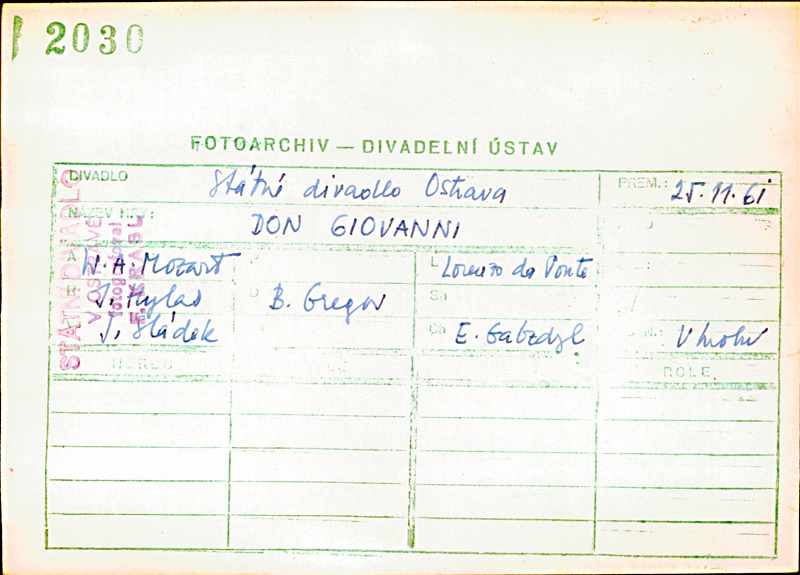 2030
FOTOARCHIV — DIVADELNÍ ÚSTAV
DIVADLO Státní divadlo Ostrava PREM.: 25.11.61
NÁZEV HRY: DON GIOVANNI
A W. A. Mozart L Lorenzo da Ponte
R J. Hylas D B. Gregor Sb
J. Sládek Ch E. Gabzdyl
ROLE
STÁTNÍ DIVADLO
V OSTRAVĚ
fotografoval
F. KRASL